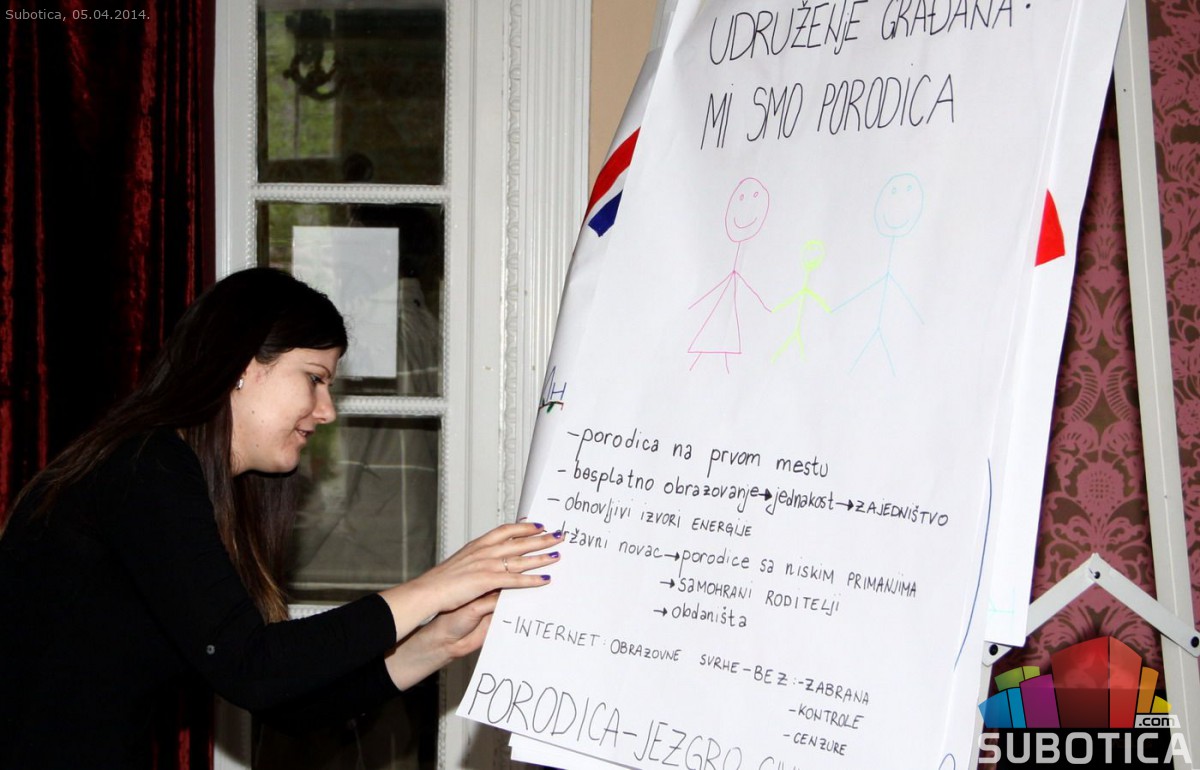 Subotica, 05.04.2014.
UDRUŽENJE GRAĐANA:
MI SMO PORODICA
-porodica na prvom mestu
- besplatno obrazovanje→jednakost→ZAJEDNIŠTVO
- obnovljivi IZVORI ENERGIJE
državni novac→porodice sa niskim PRIMANJIMA
→SAMOHRANI RODITELJI
→obdaništa
-INTERNET: OBRAZOVNE SVRHE-BEZ:-ZABRANA
-KONTROLE
-CENZURE
PORODICA-JEZGRO
.com
SUBOTICA